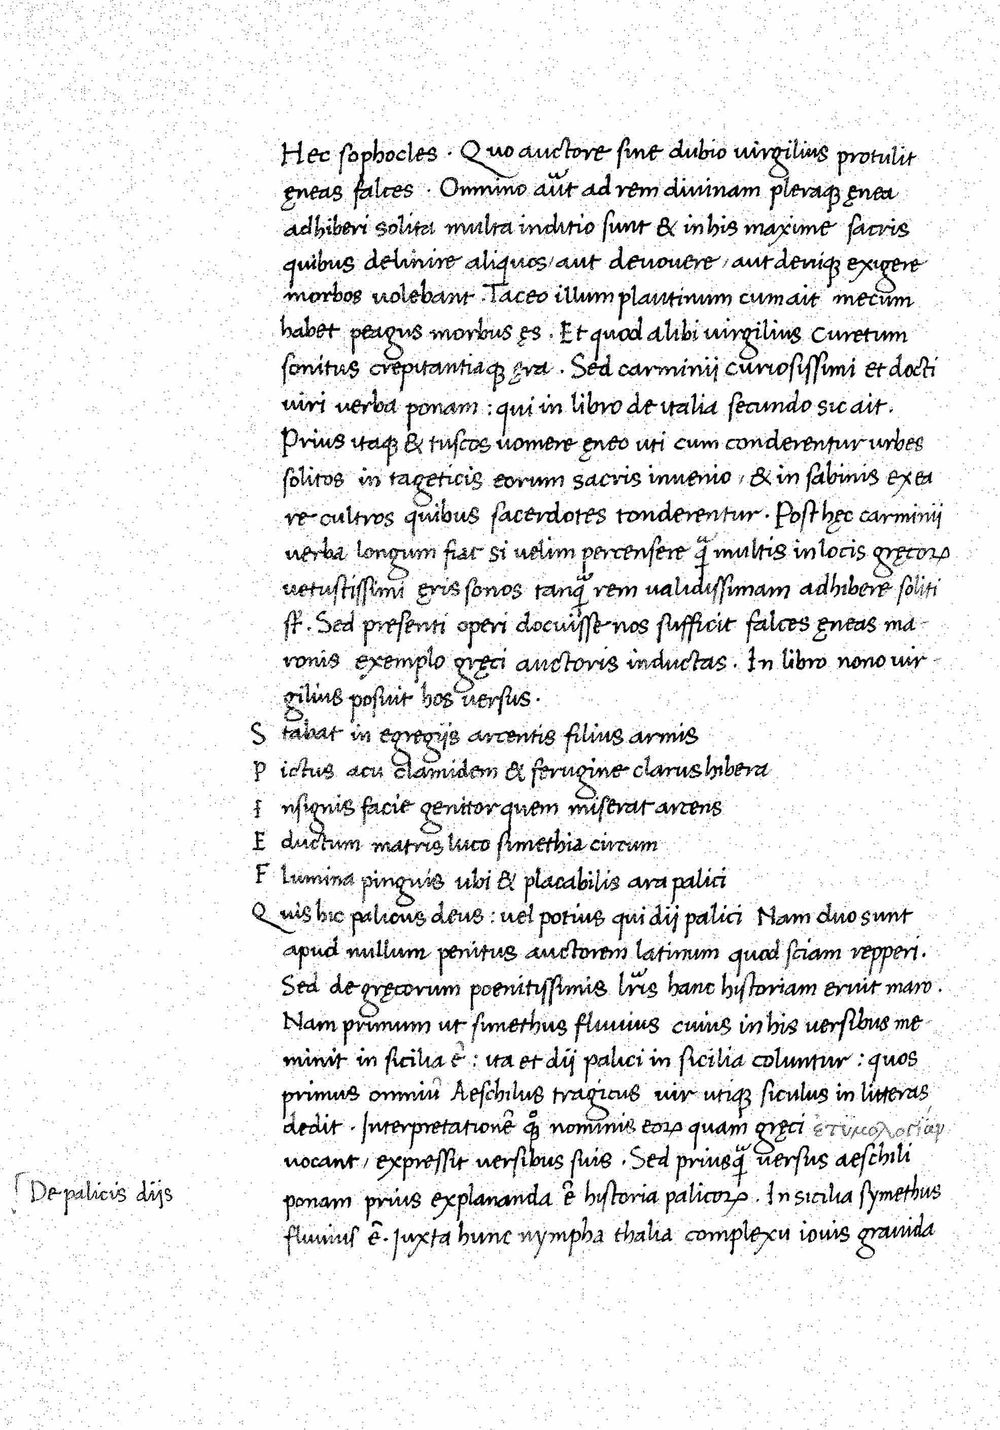 Hec sophocles . Quo auctore sine dubio uirgilius protulit
ęneas falces . Omnino aut̃ ad rem diuinam pleraqꝫ ęnea
adhiberi solita multa inditio sunt & in his maxime sacris
quibus delinire aliquos / aut deuouere / aut deniqꝫ exigere
morbos uolebant . Taceo illum plautinum cum ait mecum
habet peagus morbus ęs . Et quod alibi uirgilius Curetum
sonitus crepitantiaqꝫ ęra . Sed carminii curiosissimi et docti
uiri uerba ponam : qui in libro de italia secundo sic ait .
Prius itaqꝫ & tuscos uomere ęneo uti cum conderentur urbes
solitos in tageticis eorum sacris inuenio , & in sabinis ex ea
re cultros quibus sacerdotes tonderentur . Post hęc carminii
uerba longum fiat si uelim percensere q̃ multis in locis gręcoꝝ
uetustissimi ęris sonos tanq̃ rem ualidissimam adhibere soliti
st̃ . Sed presenti operi docuisse nos sufficit falces ęneas ma-
ronis exemplo gręci auctoris inductas . In libro nono uir-
gilius posuit hos uersus .
S tabat in egregiis arcentis filius armis
P ictus acu clamidem & ferugine clarus hibera
I nsignis facie genitor quem miserat arcens
E ductum matris luco simethia circum
F lumina pinguis ubi & placabilis ara palici
Q uis hic palicus deus : uel potius qui dii palici Nam duo sunt
apud nullum penitus auctorem latinum quod sciam repperi .
Sed de gręcorum poenitissimis lr̃is hanc historiam eruit maro .
Nam primum ut simethus fluuius cuius in his uersibus me-
minit in sicilia ẽ : ita et dii palici in sicilia coluntur : quos
primus omniũ Aeschilus tragicus uir utiqꝫ siculus in litteras
dedit . Interpretationẽ qꝫ nominis eoꝝ quam gręci ἐτυμολογίαν
uocant , expressit uersibus suis . Sed priusq̃ uersus aeschili
ponam prius explananda ẽ historia palicoꝝ . In sicilia symethus
fluuius ẽ . Juxta hunc nympha thalia complexu iouis grauida
De palicis diis